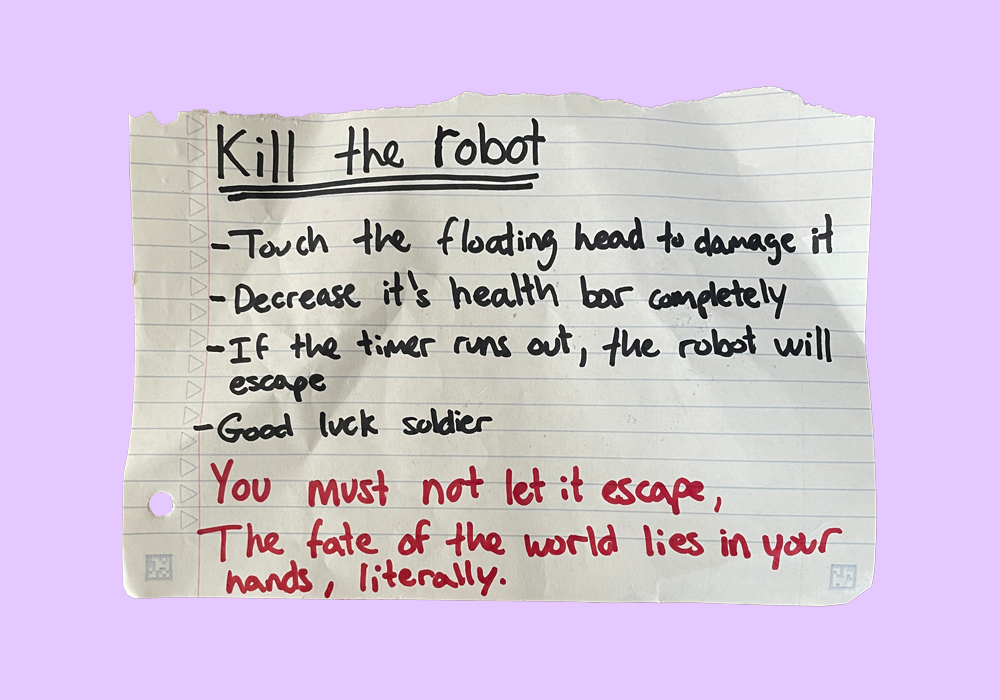 Kill the robot
-Touch the floating head to damage it
-Decrease it's health bar completely
-If the timer runs out, the robot will
escape
-Good luck soldier
You must not let it escape,
The fate of the world lies in your
hands, literally.